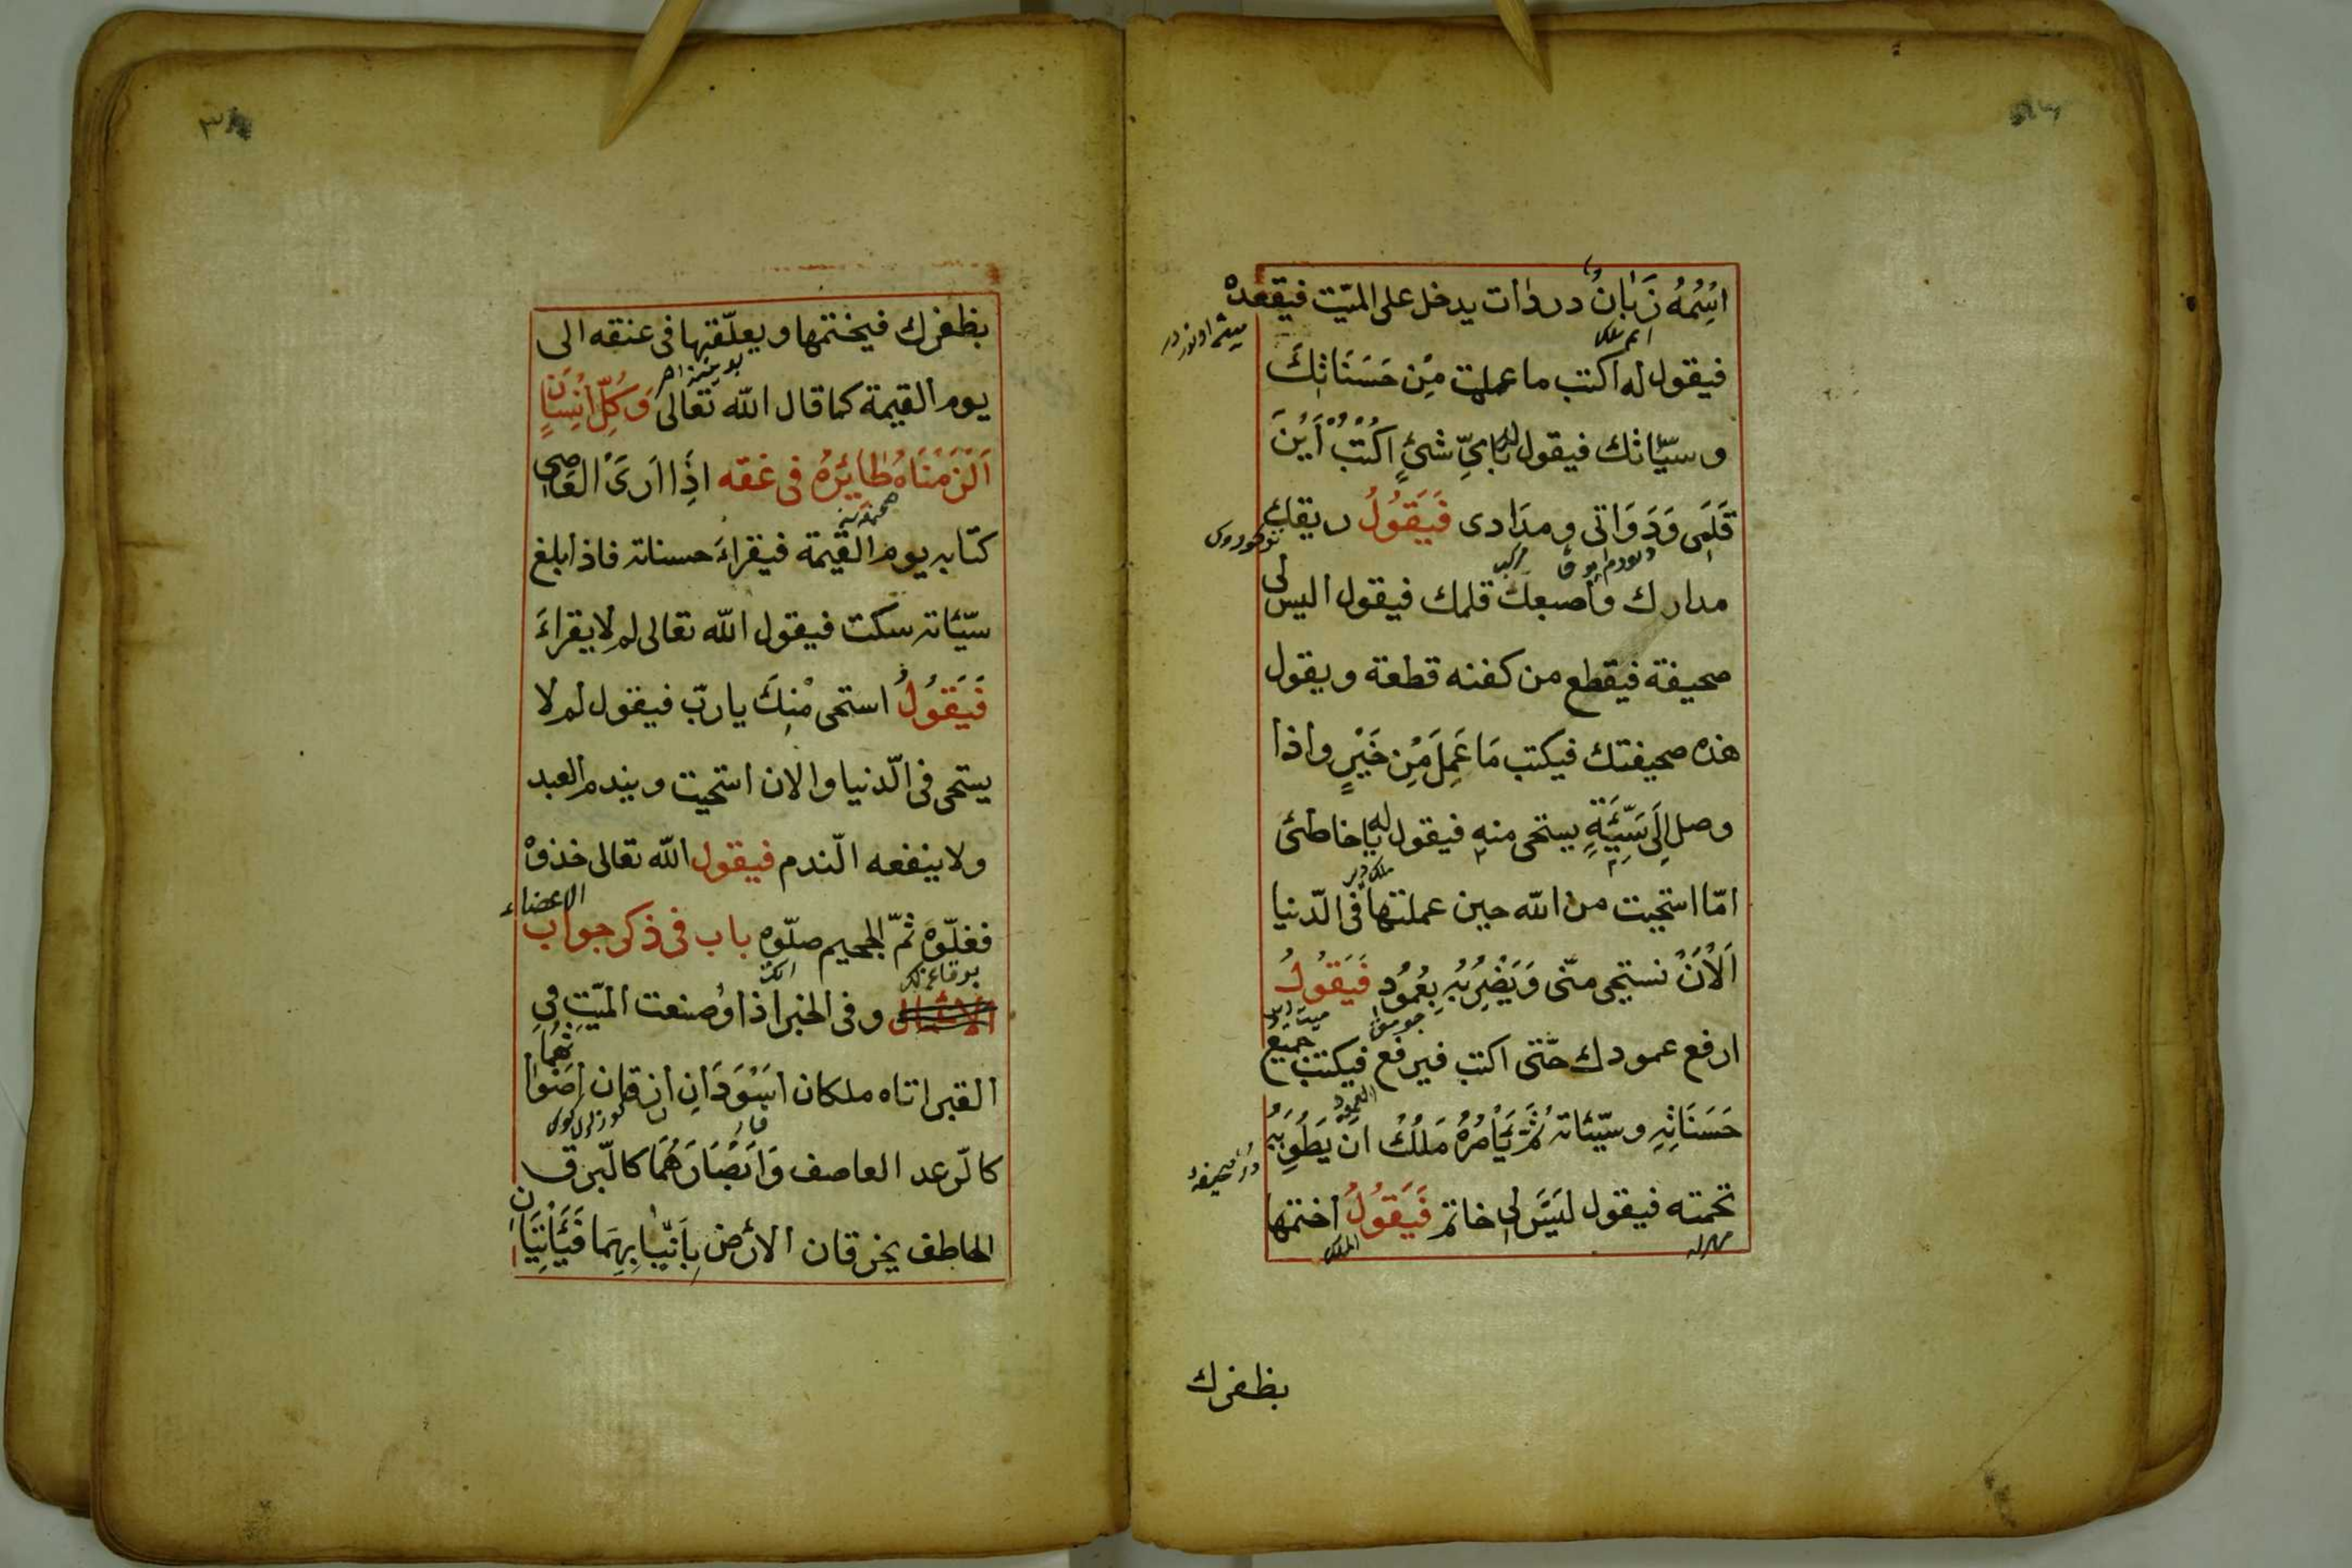 اسْمُهُ زَبَانُ دردات يدخل على الميّت فيقعده
فيقول له اكتب ما عملت مِن حَسَنَاتِكَ
وسيّاتك فيقول له بَايِّ شئٍ اكْتُبُ أَيْنَ
قَلَمِى وَدَوَاتى ومدَادى فَيَقُولُ ريقك
مدارك واصبعك قلمك فيقول اليس لى
صحيفة فيقطع من كفنه قطعة ويقول
هذه صحيفتك فيكتب مَا عَمِلَ مِن خَيْرٍ واذا
وصل اِلَى سَيِّئَةٍ يستحى منه فيقول له يا خاطئ
امّا استحيت من الله حين عملتها فى الدّنيا
اَلْاٰنَ تستحى منّى وَيَضْرِبُهِ بِعُمُودٍ فَيَقُولُ
ارفع عمودك حتّى اكتب فيرفع فيكتب جميع
حَسَنَاتِهِ وسيّئاته ثُمَّ يَأْمُرُهُ مَلَكُ ان يَطْوِيه
تحمته فيقول لَيْسَ لِى خاتم فَيَقُولُ اختمها
بظفرك
٣٨
بظفرك فيختمها ويعلّقها فى عنقه الى
يوم القيمة كما قال الله تعالى وَكُلِّ اِنْسَانٍ
اَلْزَمْنَاهُ طَائِرَهُ فى عنقه اذَا ارَىَ العَاصى
كتابه يوم القيمة فيقراءَ حسناته فاذا بلغ
سيّئاته سكت فيقول الله تعالى لم لا يقراءَ
فَيَقُولُ استحى مْنِكَ يا ربّ فيقول لم لا
يستحى فى الدّنيا والان استحيت ويندم العبد
ولا ينفعه النّدم فيقول الله تعالى خذوهْ
فغلّوهْ ثمّ الجحيم صلّوه باب فى ذكر جواب الاعضاء
وفى الخبر اذا اوُصنعت الميّتِ فِى
القبر اتاه ملكان اسْوَدَانِ ازرقان اصَوَاتهُمَا
كالرّعد العاصف وَاَبْصَارَهُمَا كالبّرق
الخاطف يخرقان الارْضَ بِاَنْيَابِهِمَا فَيَأْتِيَان